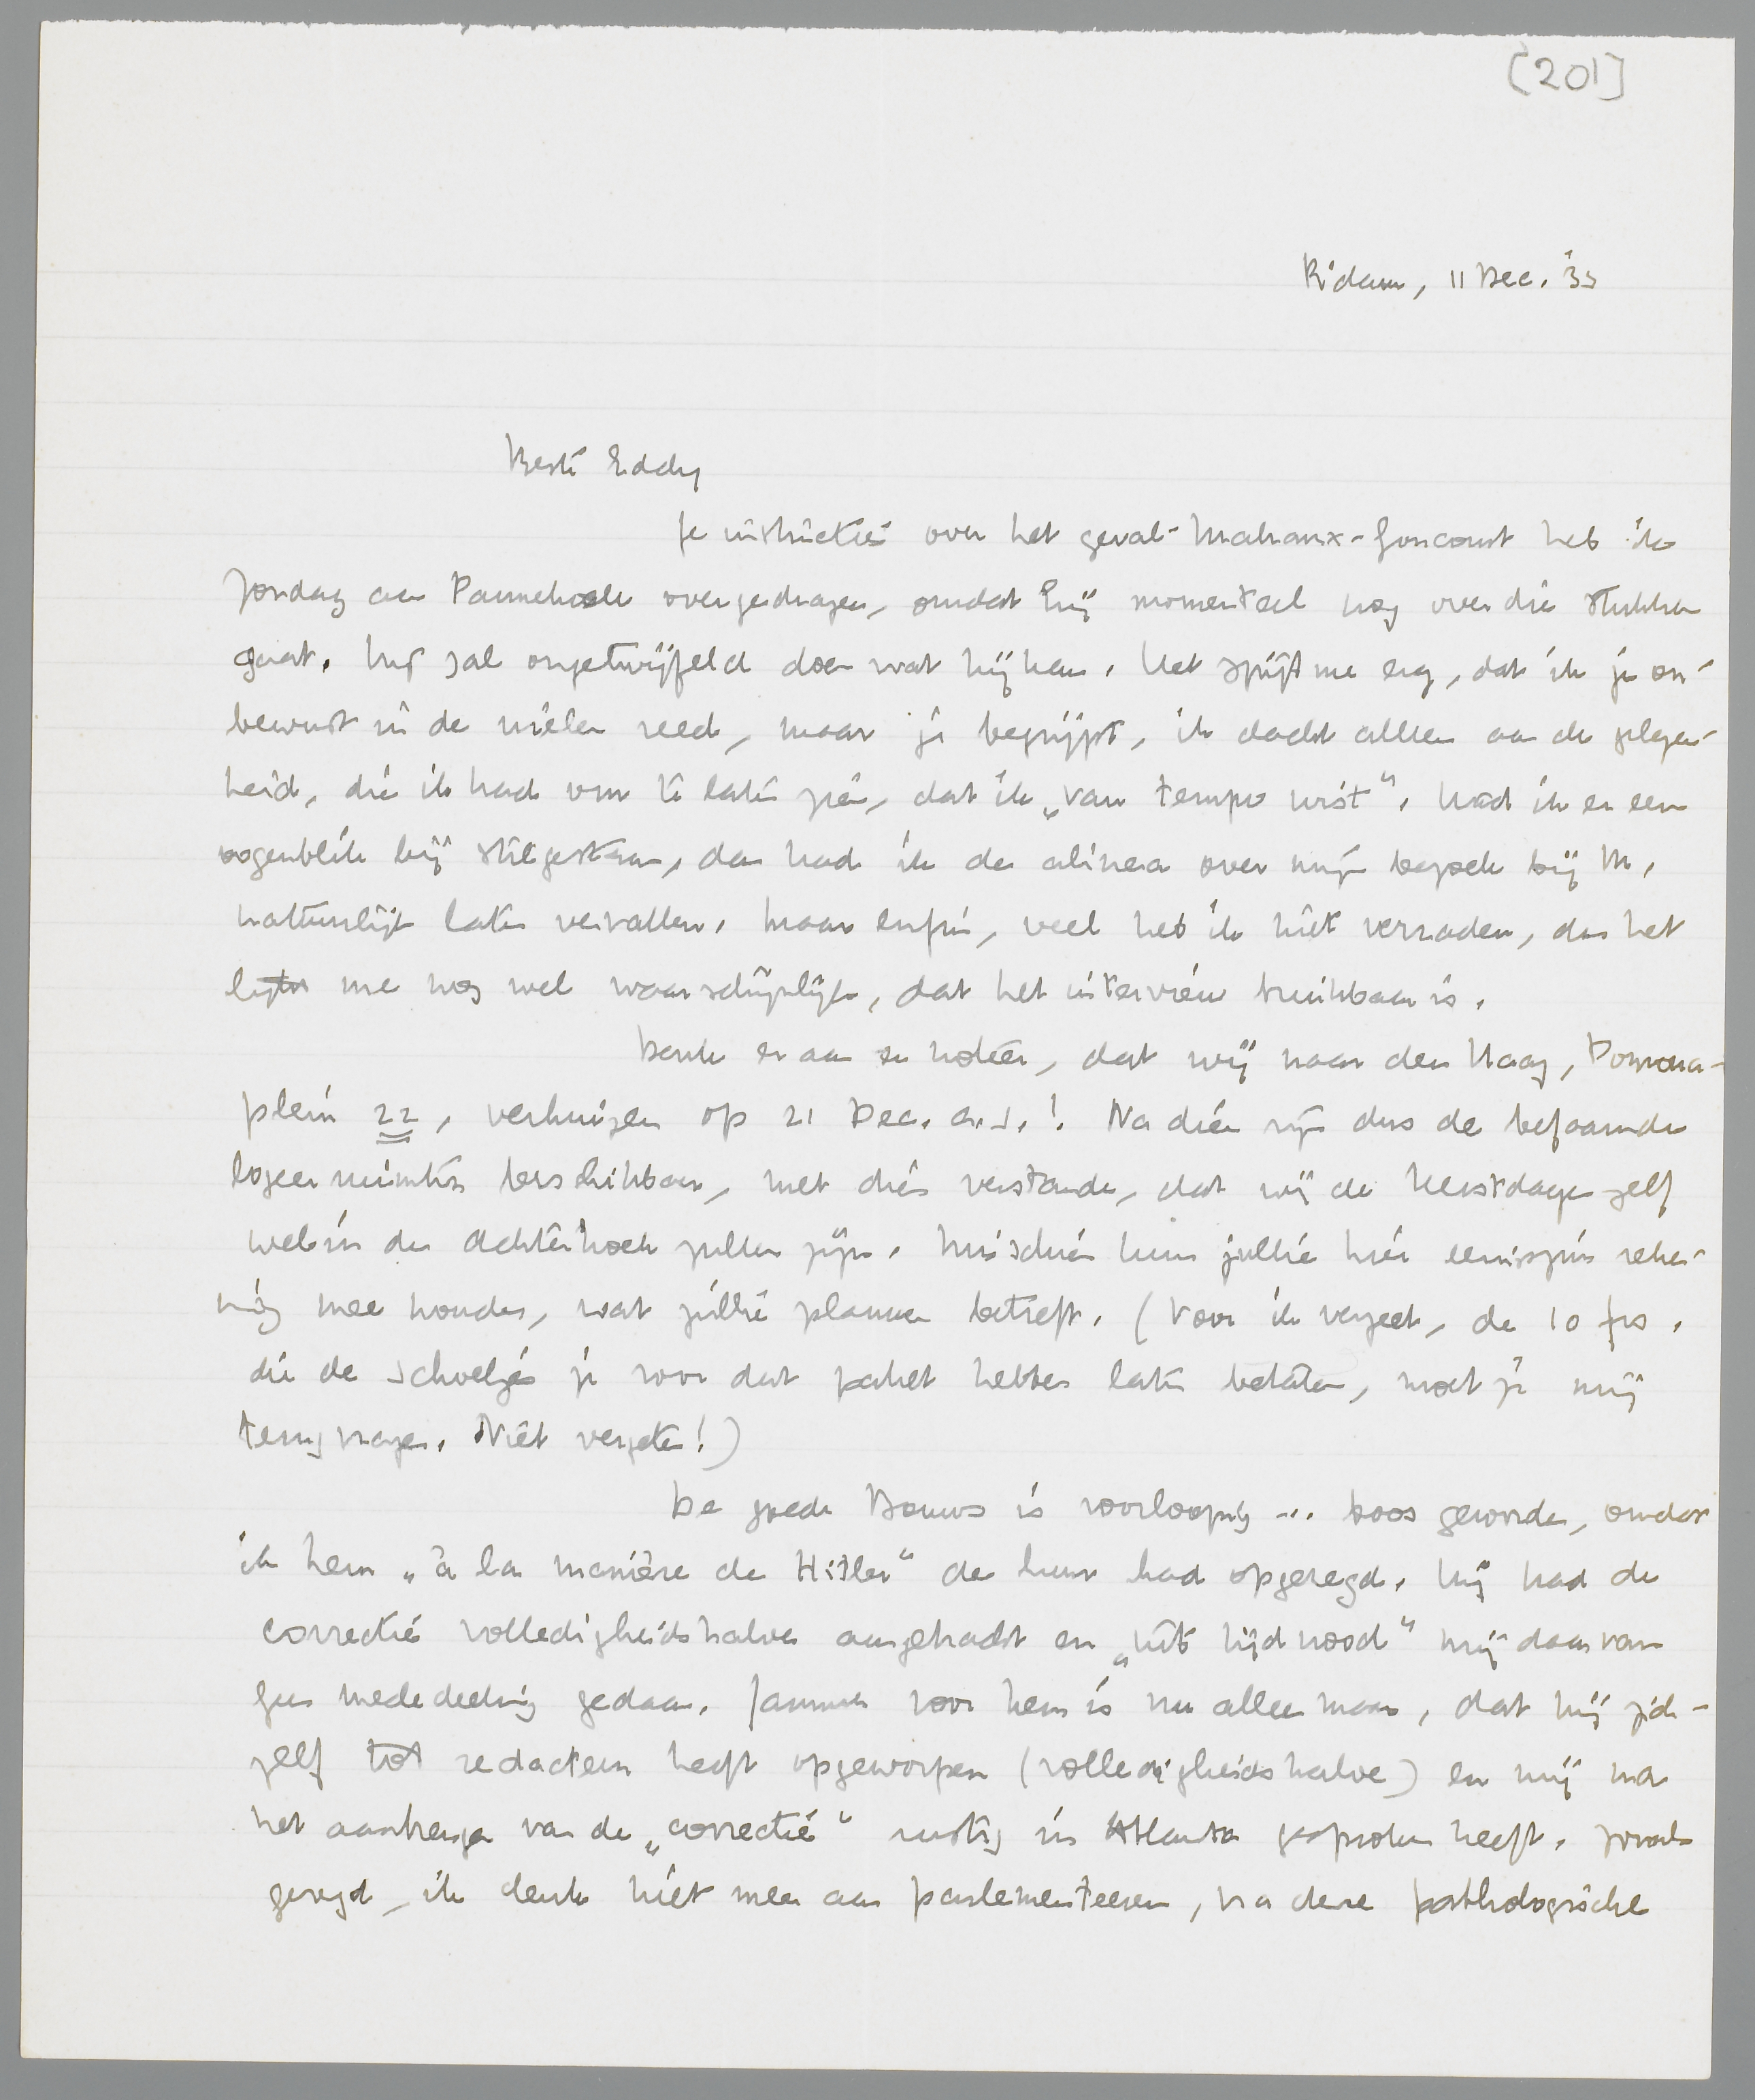 [201]
R'dam, 11 Dec. '33
Beste Eddy
Je instructie over het geval-Malraux-Goncourt heb ik
Zondag aan Pannekoek overgedragen, omdat hij momenteel nog over die stukken
gaat. Hij zal ongetwijfeld doen wat hij kan. Het spijt me erg, dat ik je on-
bewust in de wielen reed, maar je begrijpt, ik dacht alleen aan de gelegen-
heid, die ik had om te laten zien, dat ik „van tempo wist". Had ik er een
oogenblik bij stilgestaan, dan had ik de alinea over mijn bezoek bij M.
natuurlijk laten vervallen. Maar enfin, veel heb ik niet verraden, dus het
lijkt me nog wel waarschijnlijk, dat het interview bruikbaar is.
Denk er aan en noteer, dat wij naar den Haag, Pomona-
plein 22, verhuizen op 21 Dec. a.s.! Na dien zijn dus de befaamde
logeerruimten beschikbaar, met dien verstande, dat wij de Kerstdagen zelf
wel in den Achterhoek zullen zijn. Misschien kun jullie hier eenigszins reke-
ning mee houden, wat jullie plannen betreft. (Voor ik vergeet, de 10 frs.
die de schoeljes je voor dat pakket hebben laten betalen, moet je mij
terugvragen. Niet vergeten!)
De goede Bouws is voorloopig ... boos geworden, omdat
ik hem „à la manière de Hitler" de huur had opgezegd. Hij had de
correctie volledigheidshalve aangebracht en „uit tijdnood" mij daarvan
geen mededeeling gedaan. Jammer voor hem is nu alleen maar, dat hij zich-
zelf tot redacteur heeft opgeworpen (volledigheidshalve) en mij na
het aanbrengen van de „correctie" rustig in Atlanta gesproken heeft. Zooals
gezegd, ik denk niet meer aan parlementeeren, na deze pathologische